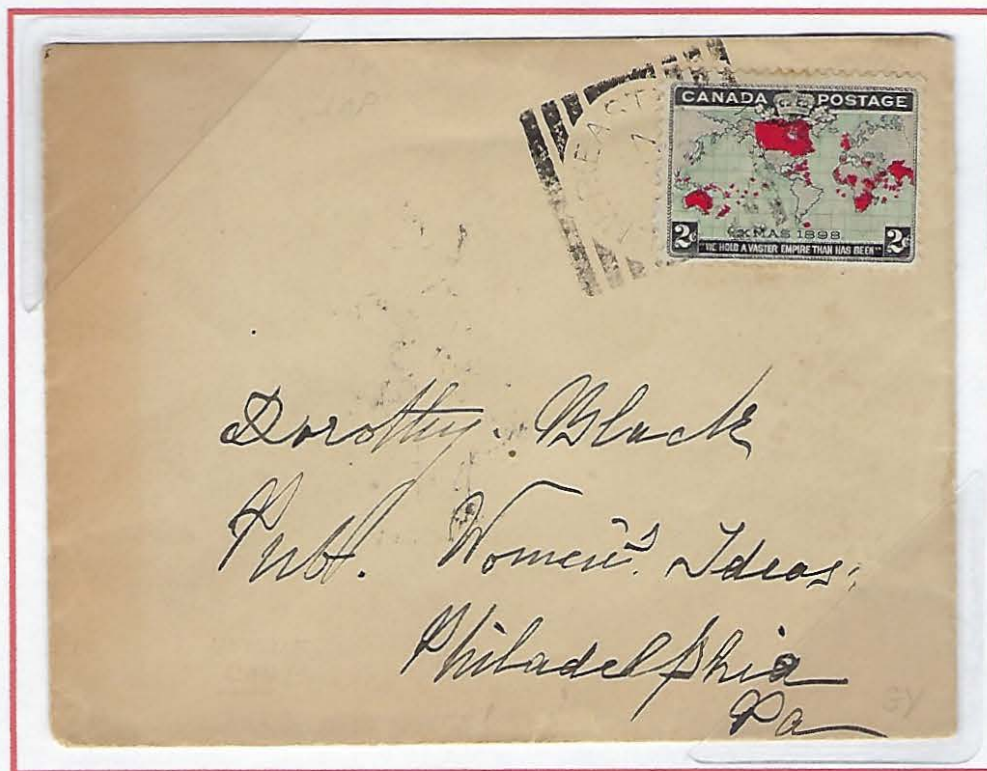 CANADA POSTAGE
EAST
XMAS 1898
2c 2c
"WE HOLD A VASTER EMPIRE THAN HAS BEEN"
Dorothy Black
Publ. Women's Ideas,
Philadelphia
Pa
GY